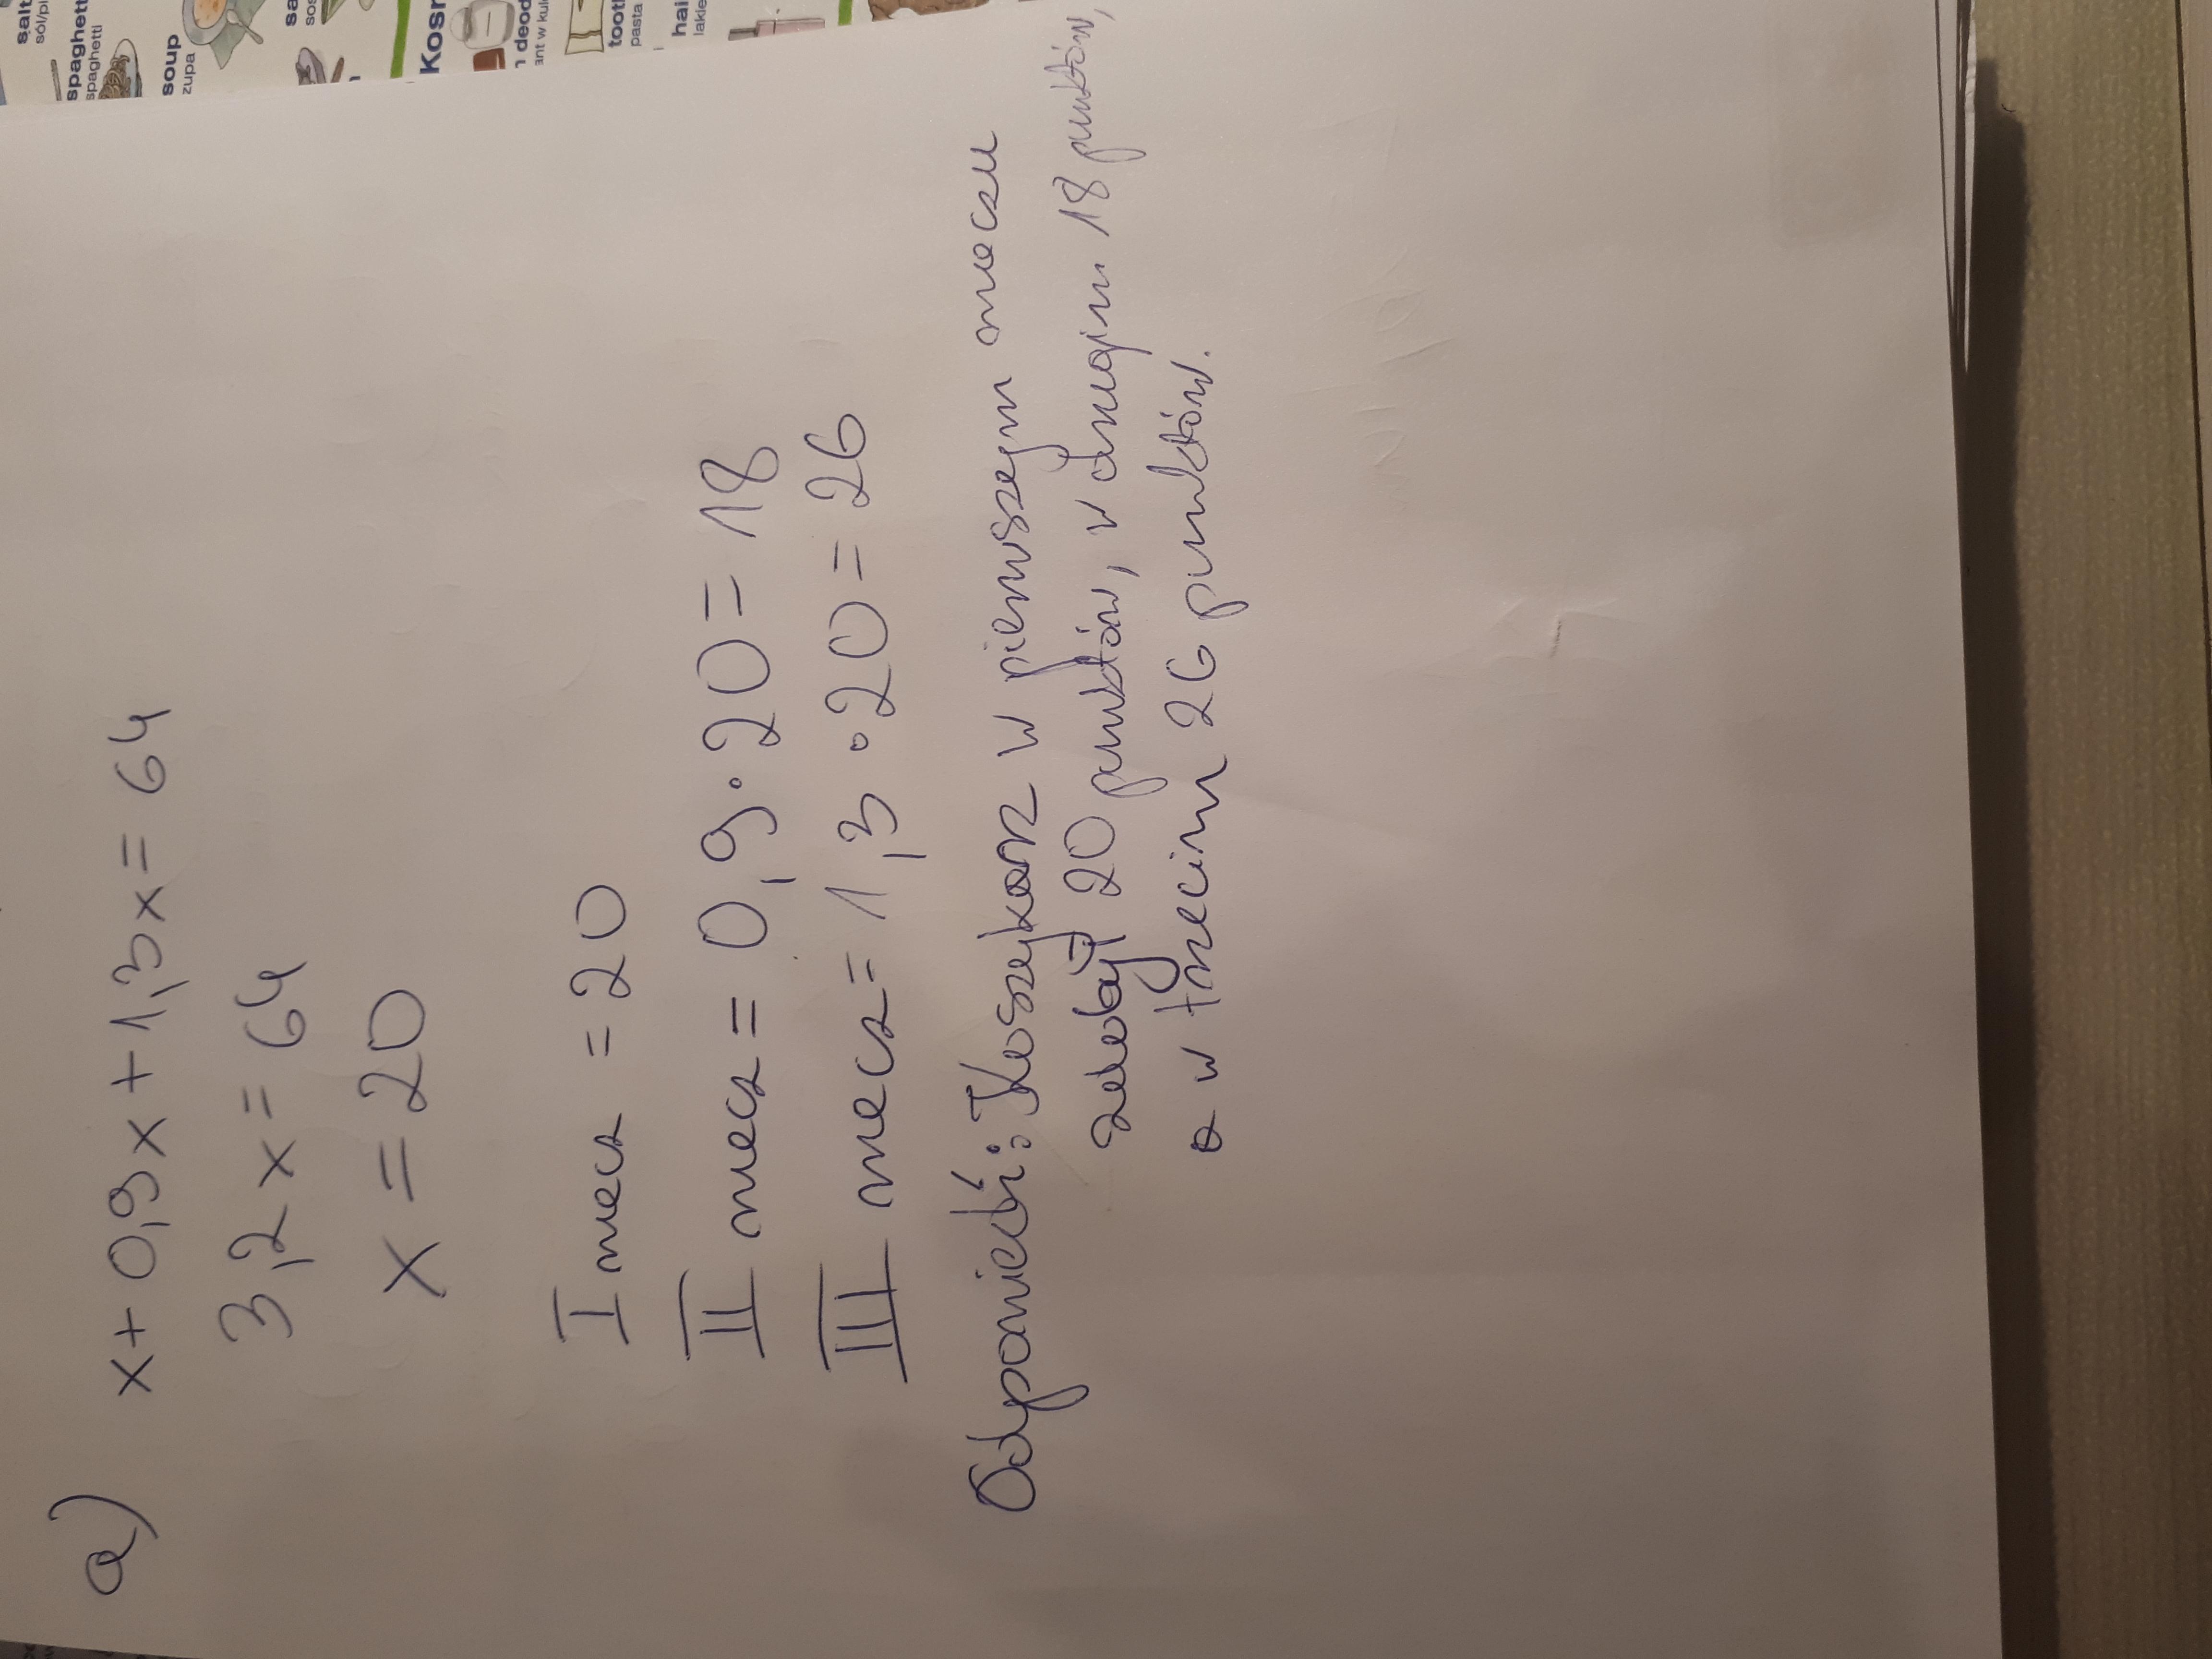 a) x + 0,9x + 1,3x = 64
3,2x = 64
x = 20
I mecz = 20
II mecz = 0,9 · 20 = 18
III mecz = 1,3 · 20 = 26
Odpowiedź: Koszykarz w pierwszym meczu
zdobył 20 punktów, w drugim 18 punktów,
a w trzecim 26 punktów.
salt
spaghetti
spaghetti
soup
zupa
Kosm
deod
ant w kul
toot
pasta
hai
lakie